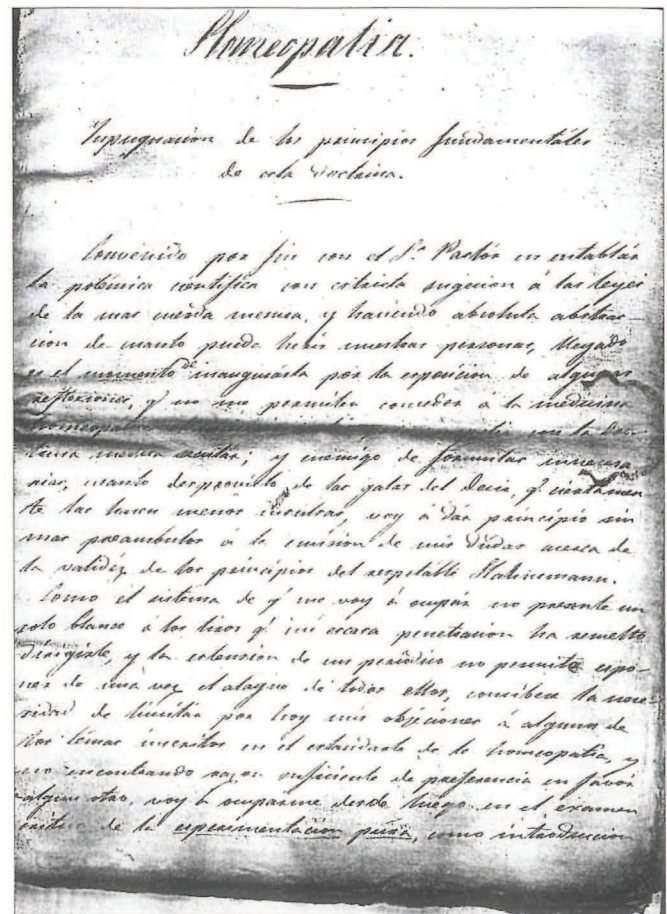 Homeopatia.
Impugnacion de los principios fundamentales
de esta doctrina.
Convenido por fin con el Sr. Pastór en entablár
la polémica cientifica con estricta sugecion á las leyes
de la mas cuerda mesura, y haciendo absoluta abstrac
cion de cuanto pueda herir nuestras personas, llegado
es el momento de inaugurárla por la esposicion de algunas
reflexiones, q̃ no me permiten conceder á la medicina
homeopatica con la
; y enemigo de formulas innecesa
rias, cuanto desprovisto de las galas del decir, q̃ ciertamen
te las hacen menos, voy á dár principio sin
mas preambulos á la emision de mis dudas acerca de
la validéz de los principios del respetable Hahnemann.
Como el sistema de q̃ me voy á ocupár no presente un
solo blanco á los tiros q̃ mi escasa penetracion ha resuelto
dirigirle, y la estension de un periodico no permita espo-
ner de una vez el ataque de todos ellos, concíbese la nece-
sidad de limitár por hoy mis objeciones á alguno de
los lémas inscritos en el estandarte de la homeopatia, y
no encontrando razon suficiente de preferencia en favor
algun otro, voy á ocuparme desde luego en el examen
critico de la esperimentacion pura, como introduccion